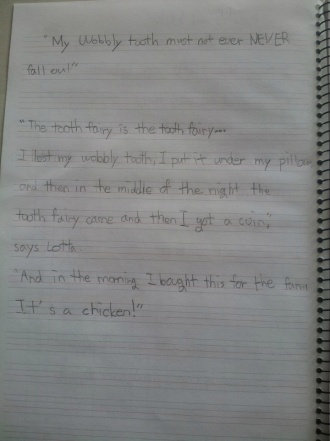 "My Wobbly tooth must not ever NEVER
fall out"
"The tooth fairy is the tooth fairy...
I lost my wobbly tooth, I put it under my pillow
and then in te middle of the night the
tooth fairy came and then I got a coin,"
says Lotta.
"And in the morning I baght this for the farm
It's a chicken!"